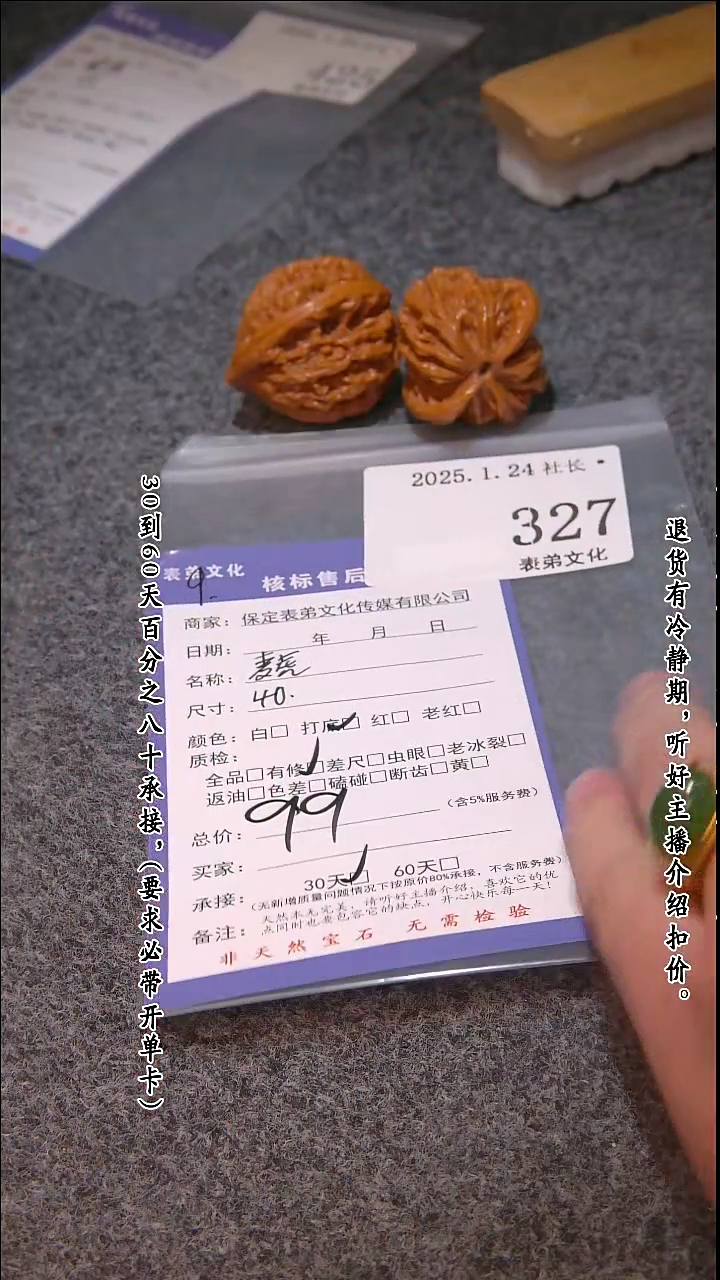 425
2025.1.24 社长
327
表弟文化
表弟文化
9.
核标售后
商家：保定表弟文化传媒有限公司
日期： 年 月 日
名称：
尺寸：40.
颜色：白□ 打底☑ 红□ 老红□
质检：
全品□有修☑差尺□虫眼□老冰裂□
返油□色差□磕碰□断齿□黄□
总价：99（含5%服务费）
买家：
承接：30天☑ 60天□
（无新增质量问题情况下按原价80%承接，不含服务费）
备注：天然本无完美，请听好主播介绍，喜欢它的优
点同时也要包容它的缺点，开心快乐每一天！
非天然宝石 无需检验
30到60天百分之八十承接，（要求必带开单卡）
退货有冷静期，听好主播介绍扣价。